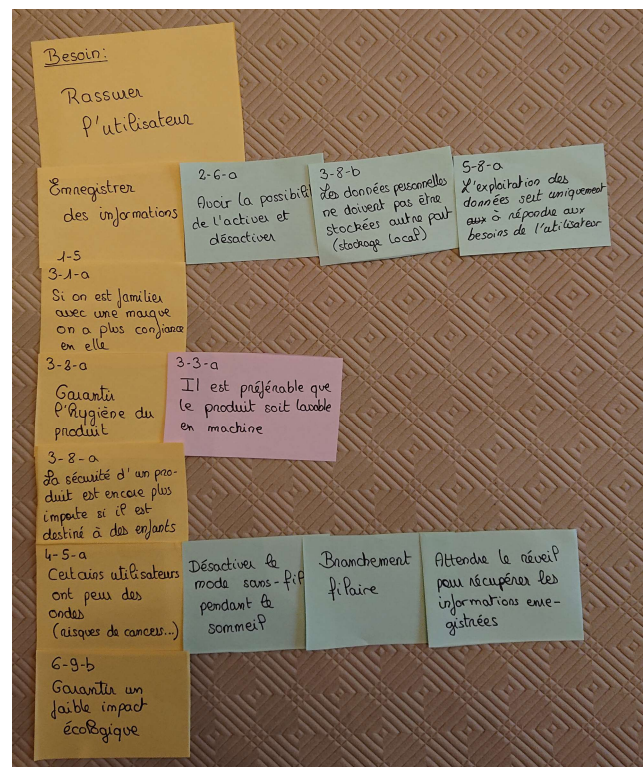 Besoin:
Rassurer
l'utilisateur
Enregistrer
des informations
1-5
2-6-a
Avoir la possibilit
de l'activer et
désactiver
3-8-b
Les données personnelles
ne doivent pas être
stockées autre part
(stockage local)
5-8-a
L'exploitation des
données sert uniquement
aux à répondre aux
besoins de l'utilisateur
3-1-a
Si on est familier
avec une marque
on a plus confiance
en elle
3-2-a
Garantir
l'hygiène du
produit
3-3-a
Il est préférable que
le produit soit lavable
en machine
3-8-a
La sécurité d'un pro-
duit est encore plus
importe si il est
destiné à des enfants
4-5-a
Certains utilisateurs
ont peur des
ondes
(risques de cancers...)
Désactiver le
mode sans-fil
pendant le
sommeil
Branchement
filaire
Attendre le réveil
pour récupérer les
informations enre-
gistrées
6-9-b
Garantir un
faible impact
écologique